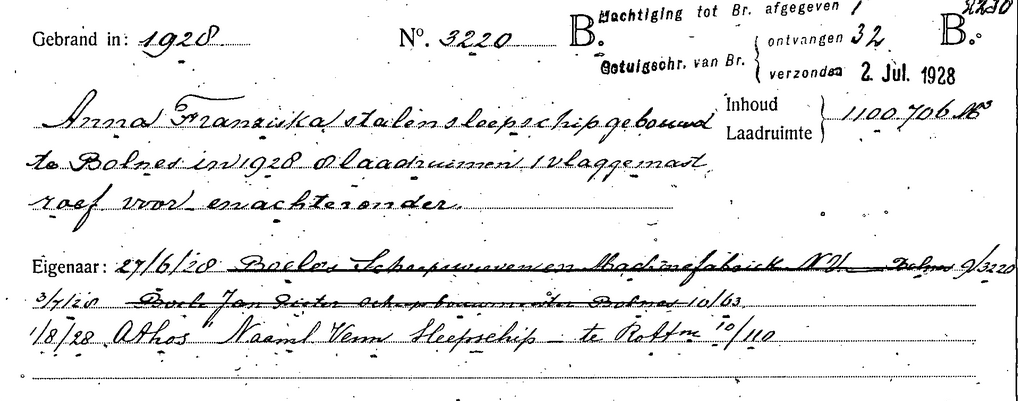 Machtiging tot Br. afgegeven 1 2230
Gebrand in: 1928 No. 3220 B. ontvangen 32 B.
Getuigschr. van Br. verzonden 2. Jul. 1928
Anna Franziska stalen sleepschip gebouwd Inhoud Laadruimte 1100.706 M3
te Bolnes in 1928 8 laadruimen 1 vlaggemast
roef voor en achteronder.
Eigenaar: 27/6/28 Boeles Scheepswerven en Machinefabriek N.V. Bolnes 9/3220
3/7/28 Boele Jan Pieter scheepbouwmeester Bolnes 10/63
1/8/28 Athos" Naaml Venn Sleepschip - te Rottm 10/110